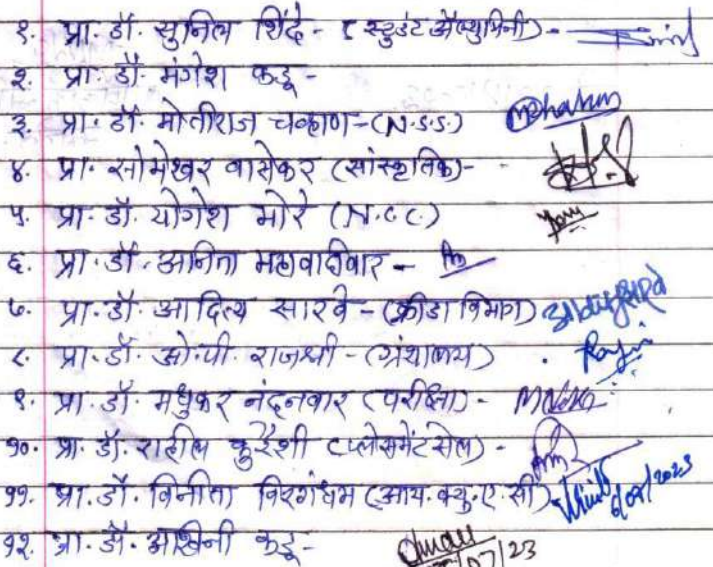 १. प्रा. डॉ. सुनिल शिंदे - (स्टुडंट ॲल्युमिनी) -
२. प्रा. डॉ. मंगेश कडू -
३. प्रा. डॉ. मोतीराज चव्हाण - (N.S.S.)
४. प्रा. सोमेश्वर वासेकर (सांस्कृतिक) -
५. प्रा. डॉ. योगेश मोरे (N.C.C.)
६. प्रा. डॉ. अनिता महावादीवार -
७. प्रा. डॉ. आदित्य सारवे - (क्रीडा विभाग)
८. प्रा. डॉ. ओ. पी. राजश्री - (ग्रंथालय)
९. प्रा. डॉ. मधुकर नंदनवार (परीक्षा) -
१०. प्रा. डॉ. राहील कुरैशी (प्लेसमेंट सेल) -
११. प्रा. डॉ. विनीता विरगंधम (आय. क्यु. ए. सी) - 2023
१२. प्रा. डॉ. अश्विनी कडू - 07/23